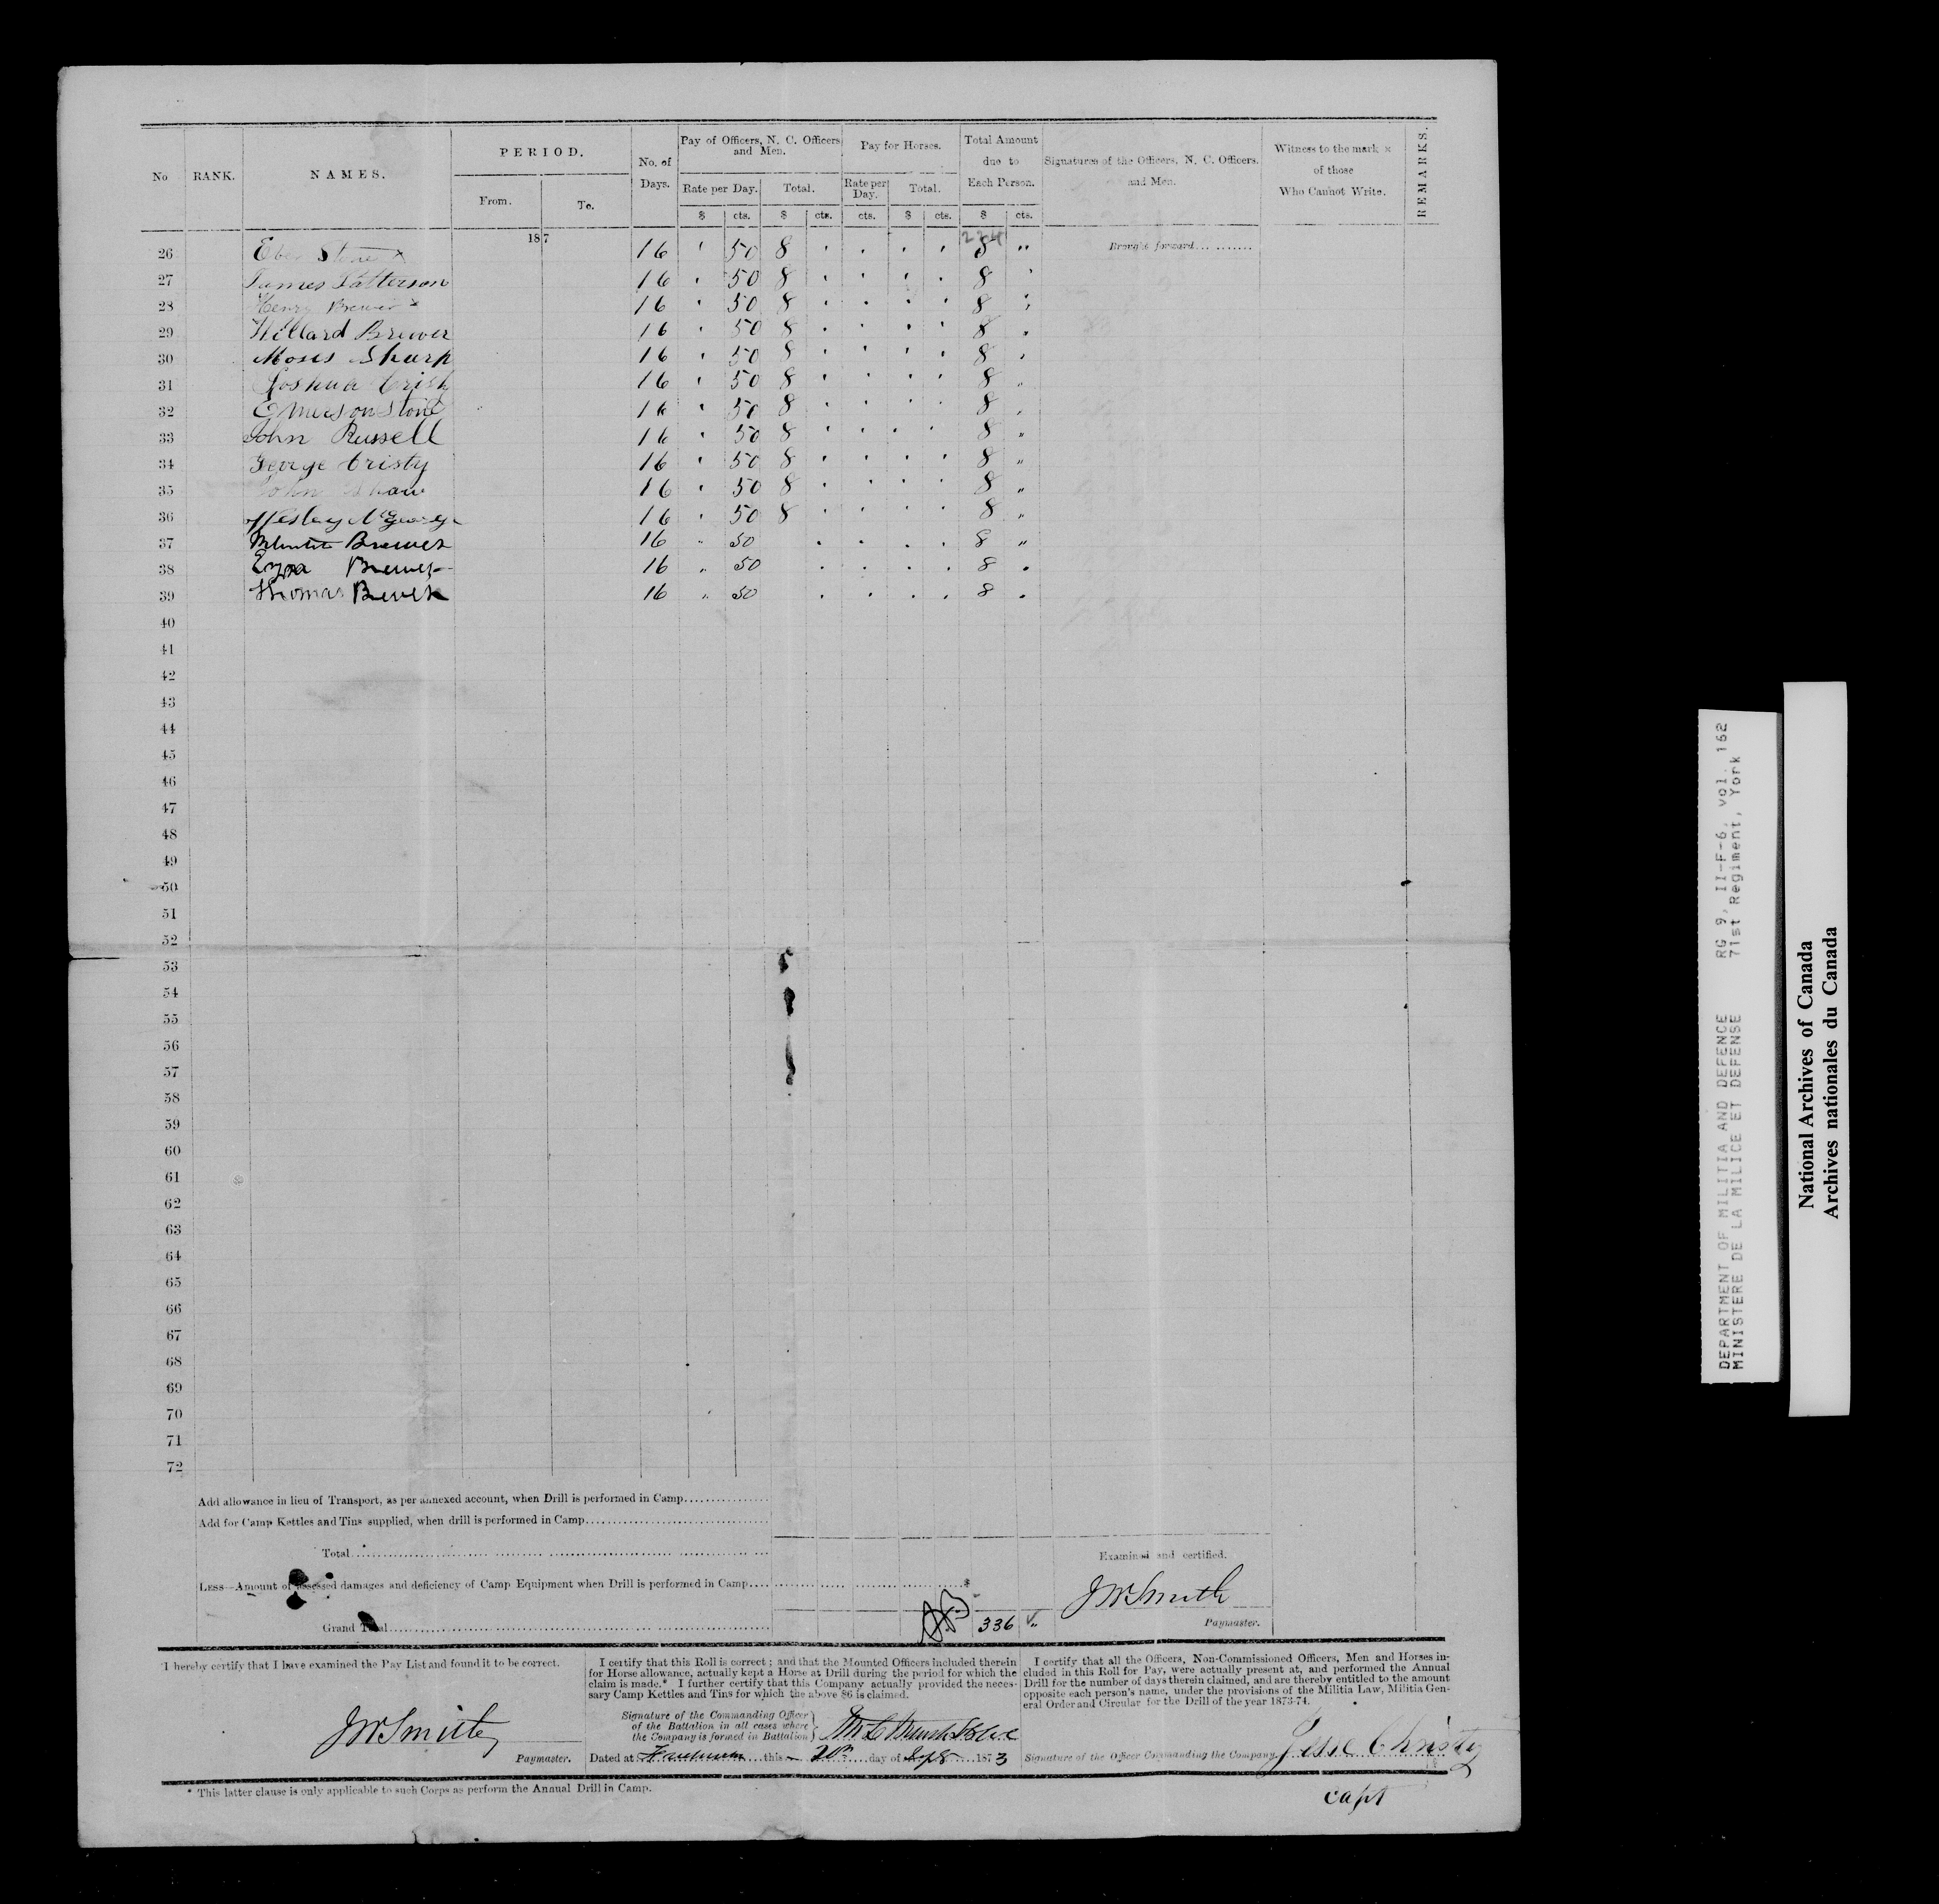 No RANK. NAMES. PERIOD. No. of Days. Pay of Officers, N. C. Officers and Men. Pay for Horses. Total Amount due to Each Person. Signatures of the Officers, N. C. Officers, and Men. Witness to the mark × of those Who Cannot Write. REMARKS.
From. To. Rate per Day. Total. Rate per Day. Total.
$ cts. $ cts. cts. $ cts. $ cts.
187 224 Brought forward...........
26 Eben Stone × 16 50 8 8 "
27 James Patterson 16 50 8 8
28 Henry Brewer × 16 50 8 8
29 Willard Brewer 16 50 8 8 "
30 Moses Sharp 16 50 8 8
31 Joshua Cristy 16 50 8 8 "
32 Emerson Stone 16 50 8 8
33 John Russell 16 50 8 8 "
34 George Cristy 16 50 8 8 "
35 John Shaw 16 50 8 8 "
36 Wesley McGeorge 16 50 8 8 "
37 Brewer 16 " 50 8 "
38 Ezra Brewer 16 " 50 8
39 Thomas Brewer 16 " 50 8
40
41
42
43
44
45
46
47
48
49
50
51
52
53
54
55
56
57
58
59
60
61
62
63
64
65
66
67
68
69
70
71
72
Add allowance in lieu of Transport, as per annexed account, when Drill is performed in Camp................
Add for Camp Kettles and Tins supplied, when drill is performed in Camp................
Total................
Examined and certified.
LESS—Amount of assessed damages and deficiency of Camp Equipment when Drill is performed in Camp................
J W Smith
Paymaster.
Grand Total................ 336 "
I hereby certify that I have examined the Pay List and found it to be correct.
J W Smith
Paymaster.
I certify that this Roll is correct; and that the Mounted Officers included therein
for Horse allowance, actually kept a Horse at Drill during the period for which the
claim is made.* I further certify that this Company actually provided the neces-
sary Camp Kettles and Tins for which the above $6 is claimed.
Signature of the Commanding Officer
of the Battalion in all cases where
the Company is formed in Battalion
Dated at this 20th day of Sept 1873
I certify that all the Officers, Non-Commissioned Officers, Men and Horses in-
cluded in this Roll for Pay, were actually present at, and performed the Annual
Drill for the number of days therein claimed, and are thereby entitled to the amount
opposite each person's name, under the provisions of the Militia Law, Militia Gen-
eral Order and Circular for the Drill of the year 1873-74.
Signature of the Officer Commanding the Company Jesse Christy
Capt
* This latter clause is only applicable to such Corps as perform the Annual Drill in Camp.
DEPARTMENT OF MILITIA AND DEFENCE RG 9, II-F-6, vol. 162
MINISTERE DE LA MILICE ET DEFENSE 71st Regiment, York
National Archives of Canada
Archives nationales du Canada